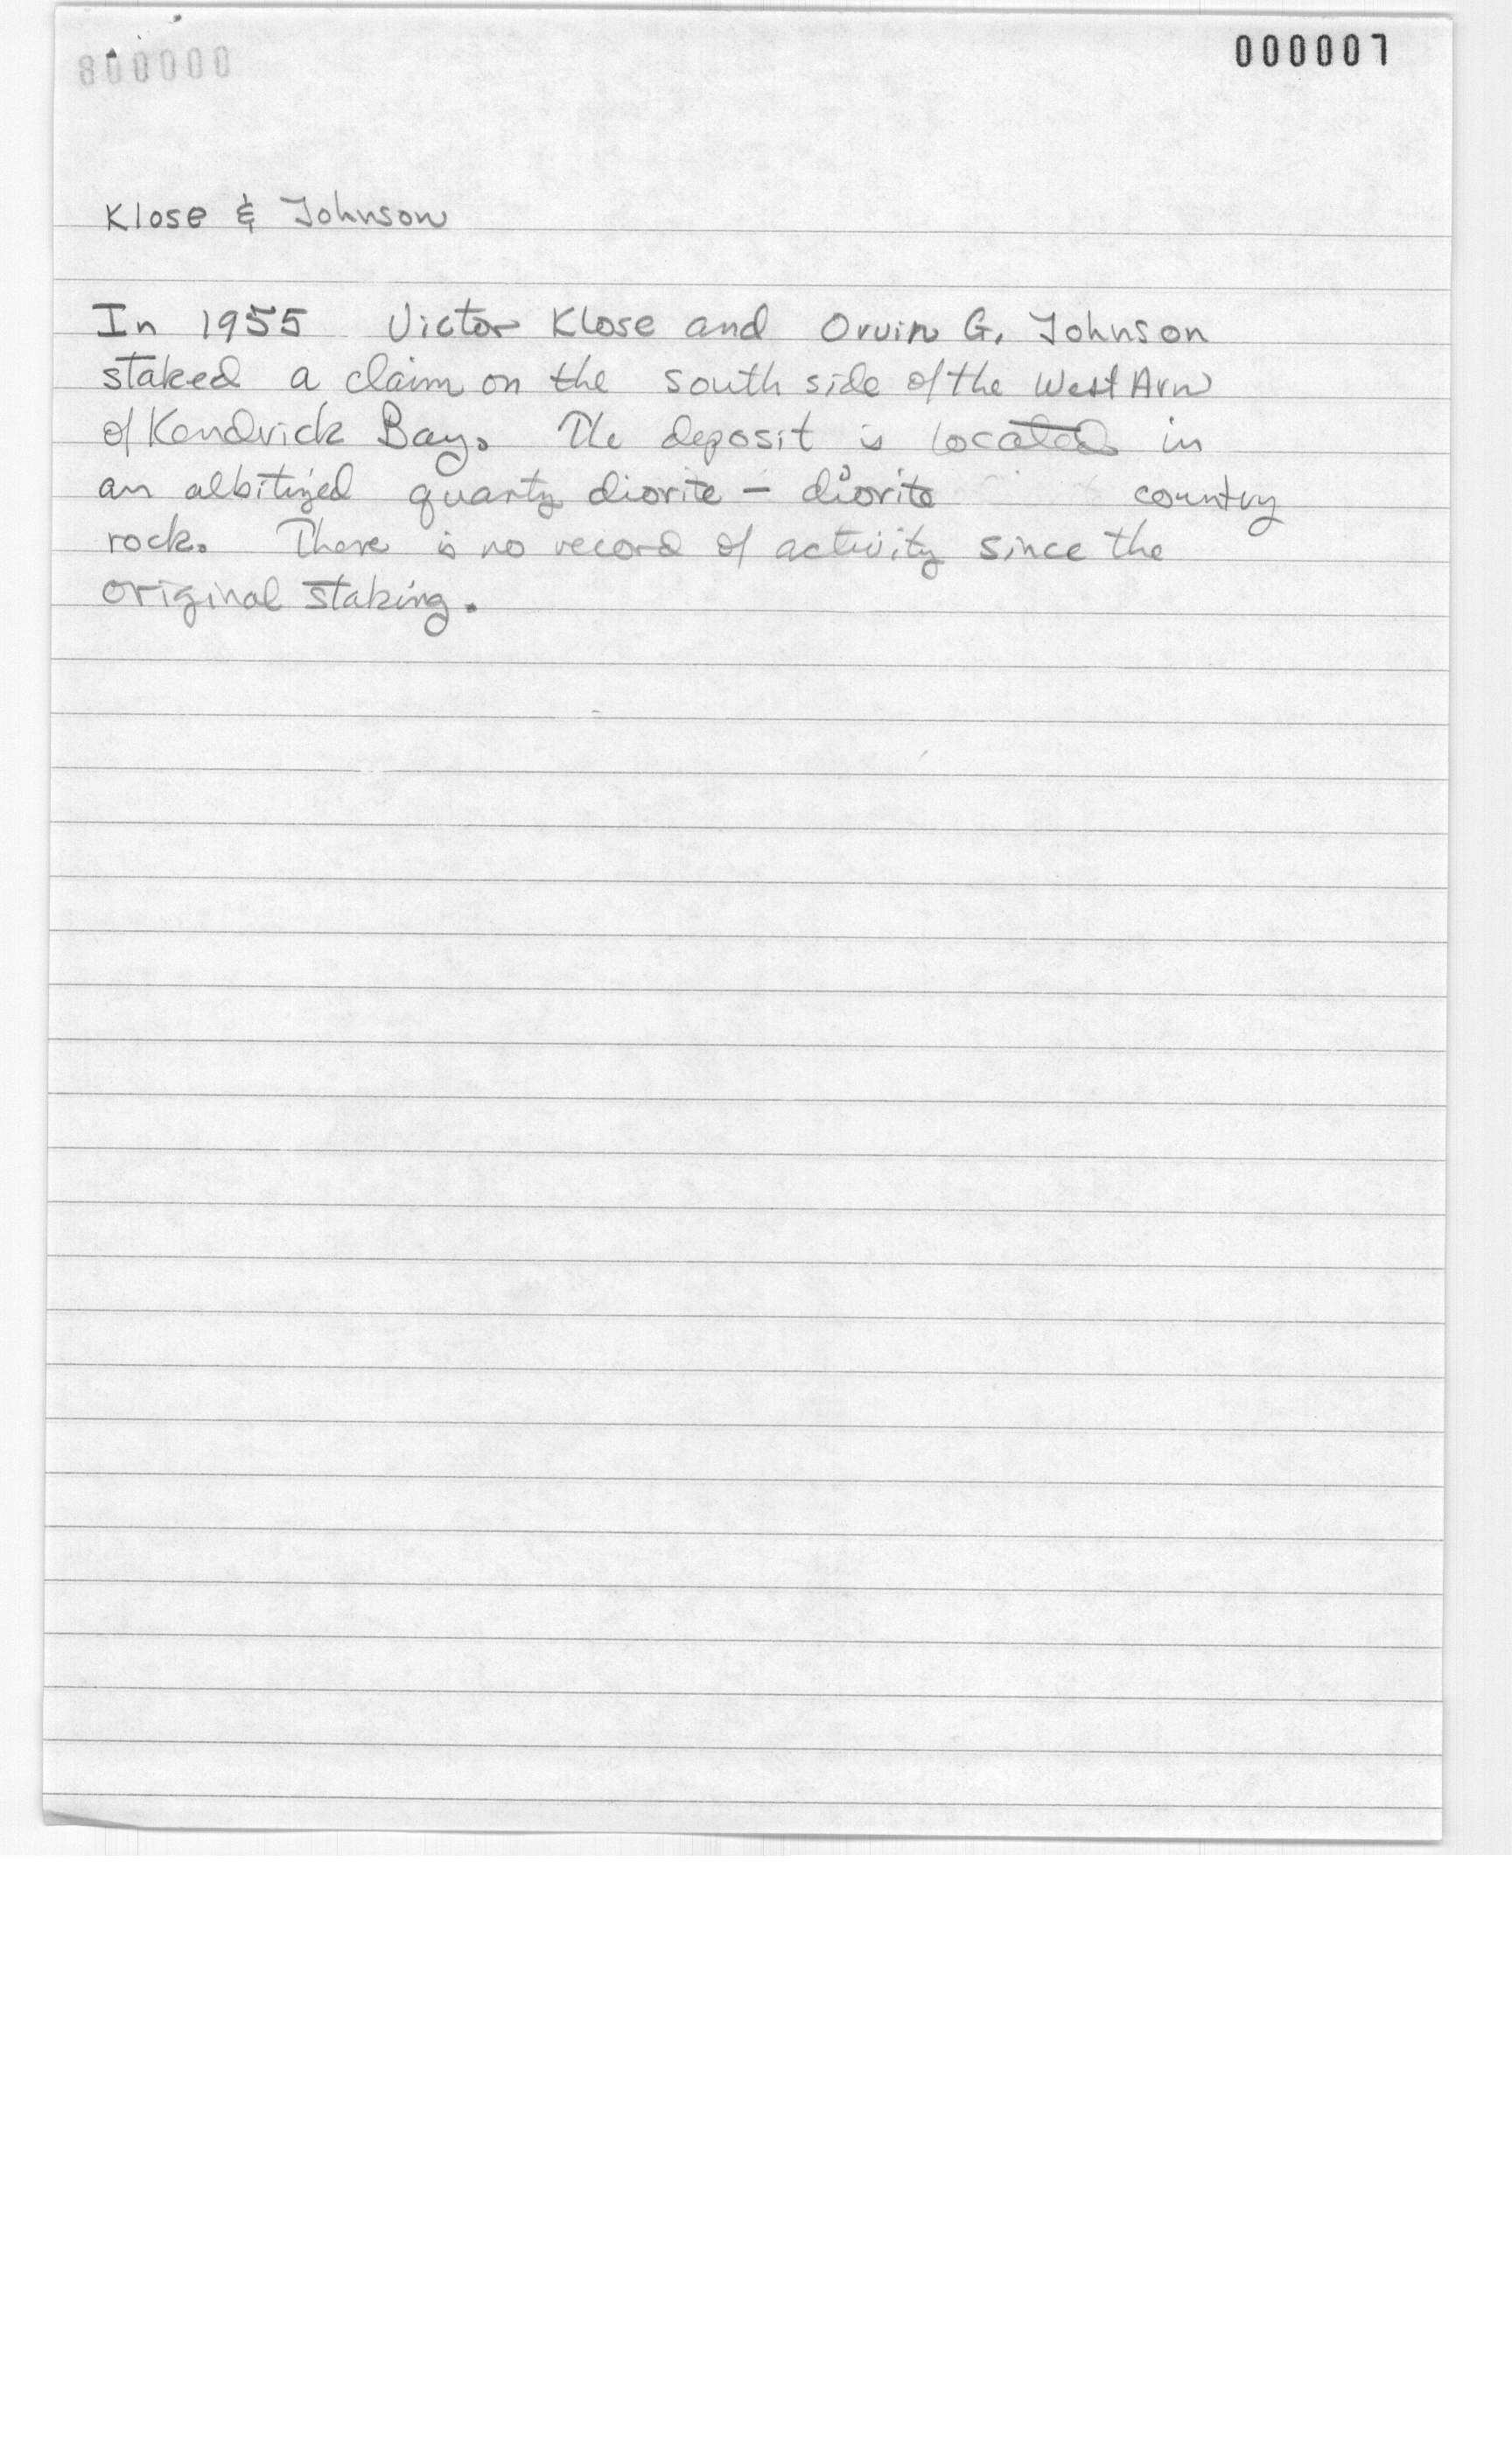 800000
000007
Klose & Johnson
In 1955 Victor Klose and Orvin G. Johnson
staked a claim on the south side of the West Arm
of Kendrick Bay. The deposit is located in
an albitized quartz diorite - diorite country
rock. There is no record of activity since the
original staking.